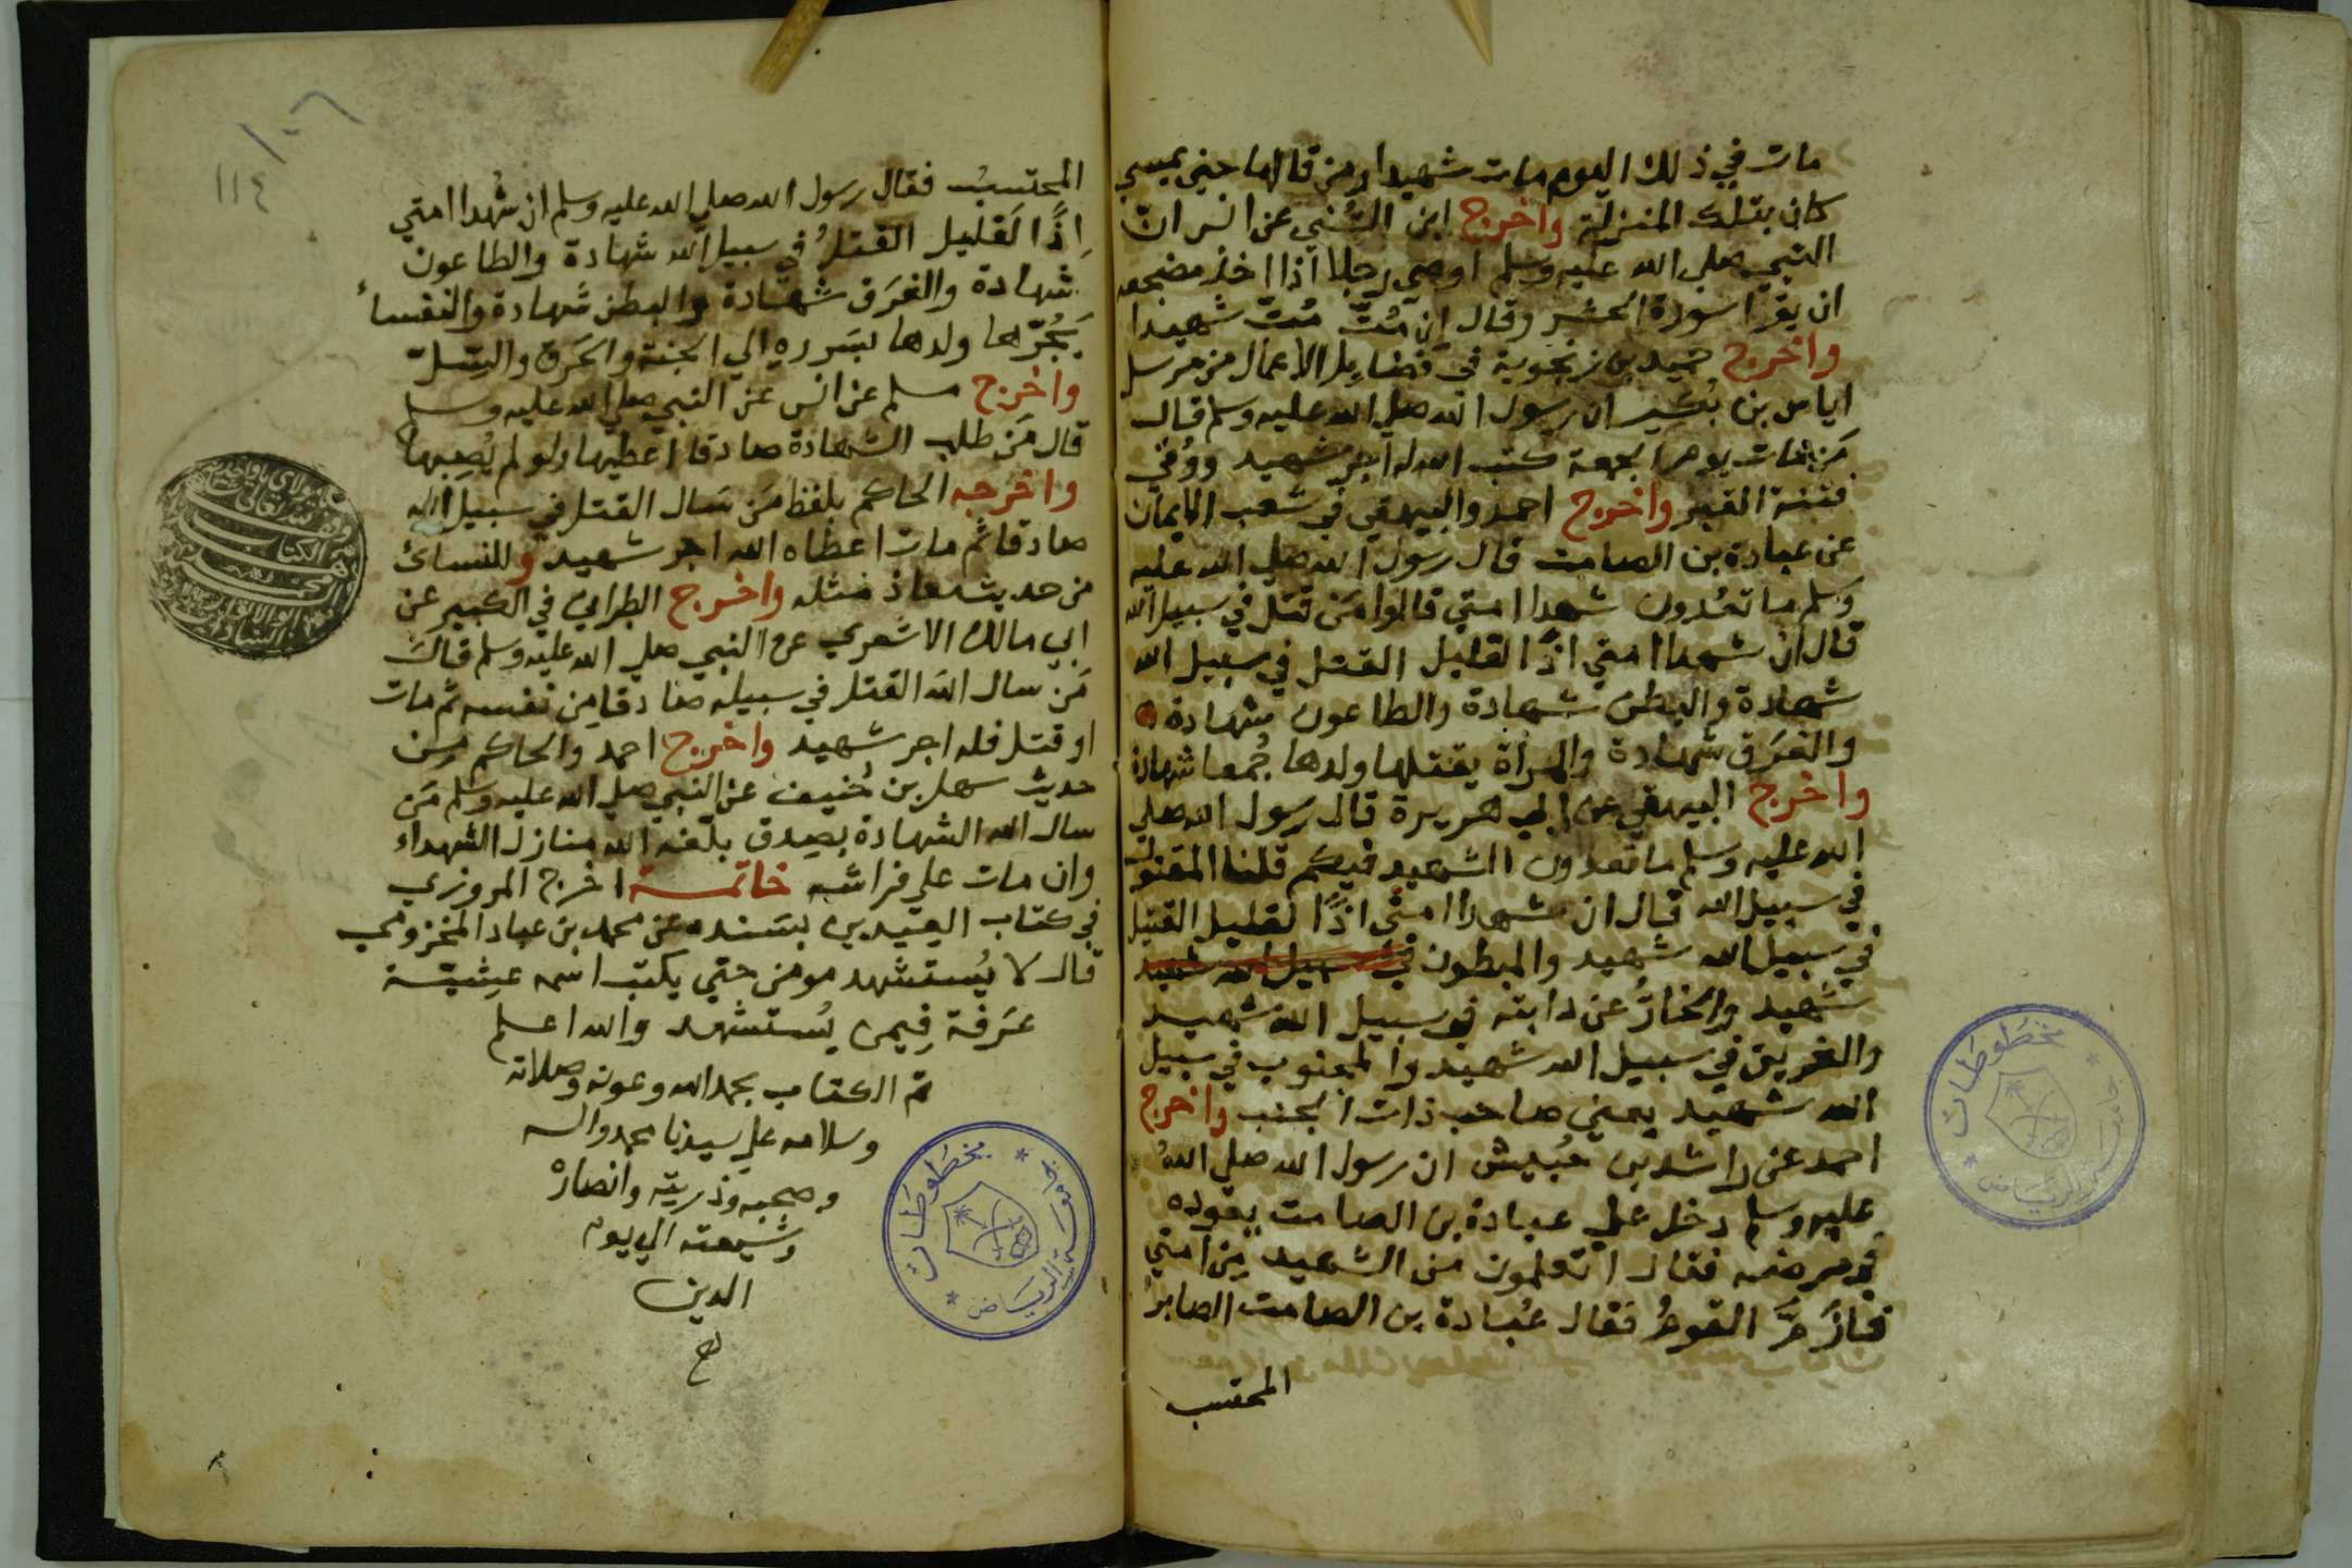 مات في ذلك اليوم مات شهيدا ومن قالها حين يمسي
كان بتلك المنزلة واخرج ابن السُّني عن انس ان
النبي صلى الله عليه وسلم اوصى رجلا اذا اخذ مضجعه
ان يقرا سورة الحشر وقال ان مُتّ مُتّ شهيدا
واخرج حميد بن زنجوية في فضايل الاعمال من مرسل
اياس بن بُكَير ان رسول الله صلى الله عليه وسلم قال
مَن مات يوم الجمعة كتب الله له اجر شهيد ووُقي
فتنة القبر واخرج احمد والبيهقي في شعب الايمان
عن عبادة بن الصامت قال رسول الله صلى الله عليه
وسلم ما تعُدون شهدا امتي قالوا مَن قتل في سبيل الله
قال ان شهدا امتي اذًا القليل القتل في سبيل الله
شهادة والبطن شهادة والطاعون شهادة
والغَرَق شهادة والمراة يقتلها ولدها جُمعا شهادة
واخرج البيهقي عن ابي هريرة قال رسول الله صلى
الله عليه وسلم ما تعدون الشهيد فيكم قلنا المقتول
في سبيل الله قال ان شهدا امتي اذًا لقليل القتيل
في سبيل الله شهيد والمبطون في سبيل الله شهيد
شهيد والخارُّ عن دابته في سبيل الله شهيد
والغريق في سبيل الله شهيد والمجنوب في سبيل
الله شهيد يعني صاحب ذات الجنب واخرج
احمد عن راشد بن حُبيش ان رسول الله صلى اللهُ
عليه وسلم دخل على عبادة بن الصامت يعوده
في مرضه فقال اتعلمون من الشهيد مِن امتي
فارَمَّ القومُ فقال عُبادة بن الصامت الصابرُ
المحتسب
المحتسبُ فقال رسول الله صلى الله عليه وسلم ان شُهدا امتي
اِذًا لَقليل القتلُ في سبيل الله شهادة والطاعون
شهادة والغَرَق شهادة والبطن شهادة والنفساءُ
يَجُرّها ولدها بسَرره الي الجنة والحَرق والسّلّ
واخرج مسلم عن انس عن النبي صلى الله عليه وسلم
قال مَن طلب الشهادة صادقا اعطيها ولو لم يُصِبها
واخرجه الحاكم بلفظ مَن سَال القتل في سبيل الله
صادقا ثم مات اعطاه الله اجر شهيد وللنسائ
من حديث معاذ مثله واخرج الطبراني في الكبير عن
ابي مالك الاشعري عن النبي صلي الله عليه وسلم قال
مَن سال الله القتل في سبيله صادقا مِن نفسه ثم مات
او قتل فله اجر شهيد واخرج احمد والحاكم مِن
حديث سهل بن حُنيف عن النبي صلي الله عليه وسلم مَن
سال الله الشهادة بصِدق بلّغه الله منازل الشهداء
وان مات على فراشه خاتمة اخرج المروزي
في كتاب العيدين بسَنده عن محمد بن عباد المخزومي
قال لا يُستشهد مومن حتي يكتب اسمه عشيّة
عَرَفة فِيمن يُستشهد والله اعلم
تم الكتاب بحمد الله وعونه وصلاته
وسلامه على سيدنا محمد واله
وصحبه وذريته وانصاره
وشيعته الي يوم
الدين
١٠٦
١١٤
مخطوطات
جامعة الرياض
مخطوطات
جامعة الرياض